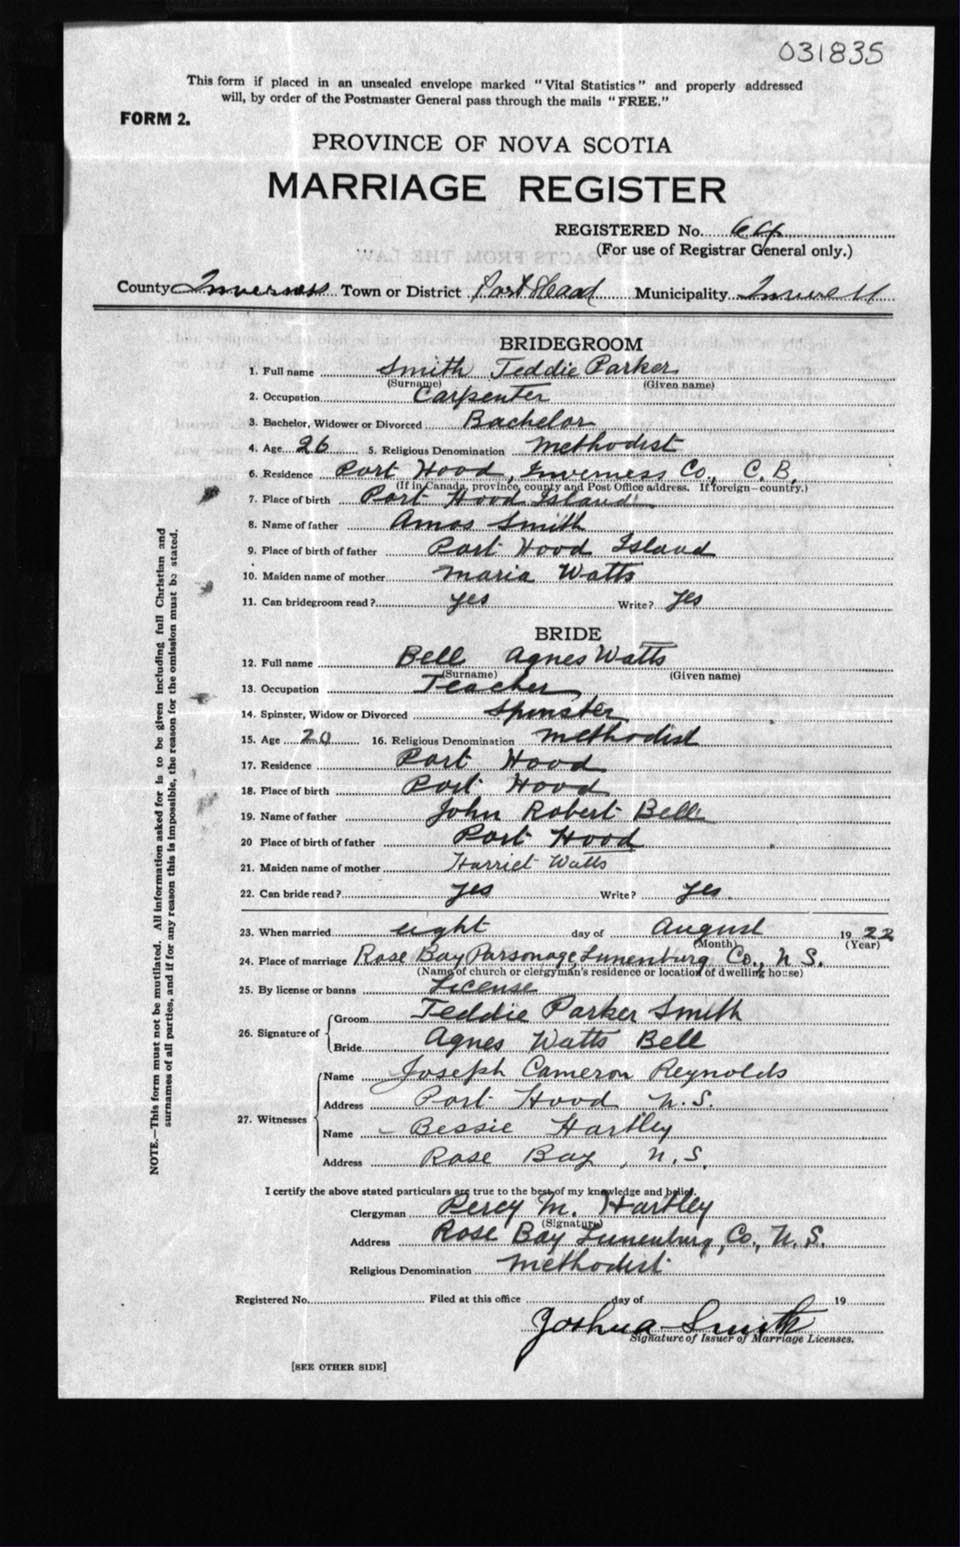 031835
This form if placed in an unsealed envelope marked "Vital Statistics" and properly addressed
will, by order of the Postmaster General pass through the mails "FREE."
FORM 2.
PROVINCE OF NOVA SCOTIA
MARRIAGE REGISTER
REGISTERED No. 64
(For use of Registrar General only.)
County Inverness Town or District Port Hood Municipality
BRIDEGROOM
1. Full name Smith Teddie Parker
(Surname) (Given name)
2. Occupation Carpenter
3. Bachelor, Widower or Divorced Bachelor
4. Age 26 5. Religious Denomination Methodist
6. Residence Port Hood, Inverness Co., C. B.
(If in Canada, province, county and Post Office address. If foreign—country.)
7. Place of birth Port Hood Island
8. Name of father Amos Smith
9. Place of birth of father Port Hood Island
10. Maiden name of mother Maria Watts
11. Can bridegroom read? yes Write? yes
BRIDE
12. Full name Bell Agnes Watts
(Surname) (Given name)
13. Occupation Teacher
14. Spinster, Widow or Divorced Spinster
15. Age 20 16. Religious Denomination Methodist
17. Residence Port Hood
18. Place of birth Port Hood
19. Name of father John Robert Bell
20 Place of birth of father Port Hood
21. Maiden name of mother Harriet Watts
22. Can bride read? yes Write? yes.
23. When married eight day of August 19 22
(Month) (Year)
24. Place of marriage Rose Bay Parsonage, Lunenburg Co., N. S.
(Name of church or clergyman's residence or location of dwelling house)
25. By license or banns License
26. Signature of Groom Teddie Parker Smith
Bride Agnes Watts Bell
27. Witnesses
Name Joseph Cameron Reynolds
Address Port Hood N.S.
Name Bessie Hartley
Address Rose Bay, N.S.
I certify the above stated particulars are true to the best of my knowledge and belief.
Clergyman Percy M. Hartley
(Signature)
Address Rose Bay Lunenburg, Co., N. S.
Religious Denomination Methodist
Registered No. Filed at this office day of 19
Joshua Smith
Signature of Issuer of Marriage Licenses.
[SEE OTHER SIDE]
NOTE.—This form must not be mutilated. All information asked for is to be given including full Christian and
surnames of all parties, and if for any reason this is impossible, the reason for the omission must be stated.